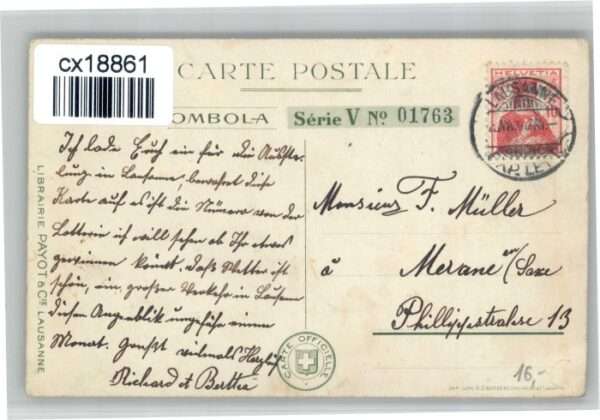 cx18861
CARTE POSTALE
TOMBOLA
Série V No 01763
HELVETIA
10
LAUSANNE
Ich lade Euch ein für die Ausstel-
lung in Lausanne, bewahrt diese
Karte auf es ist die Número von der
Lotterie ich will sehen ob Ihr etwas
gewinnen könnt. Das Wetter ist
schön, ein großer Verkehr in Lausanne
diesen Augenblick ungefähr einen
Monat. Grüßt vielmals Herzlich
Richard et Berthe
Monsieur F. Müller
à Merane /Saxe
Phillippstralsse 13
LIBRAIRIE PAYOT & Cie LAUSANNE
CARTE OFFICIELLE
16,-